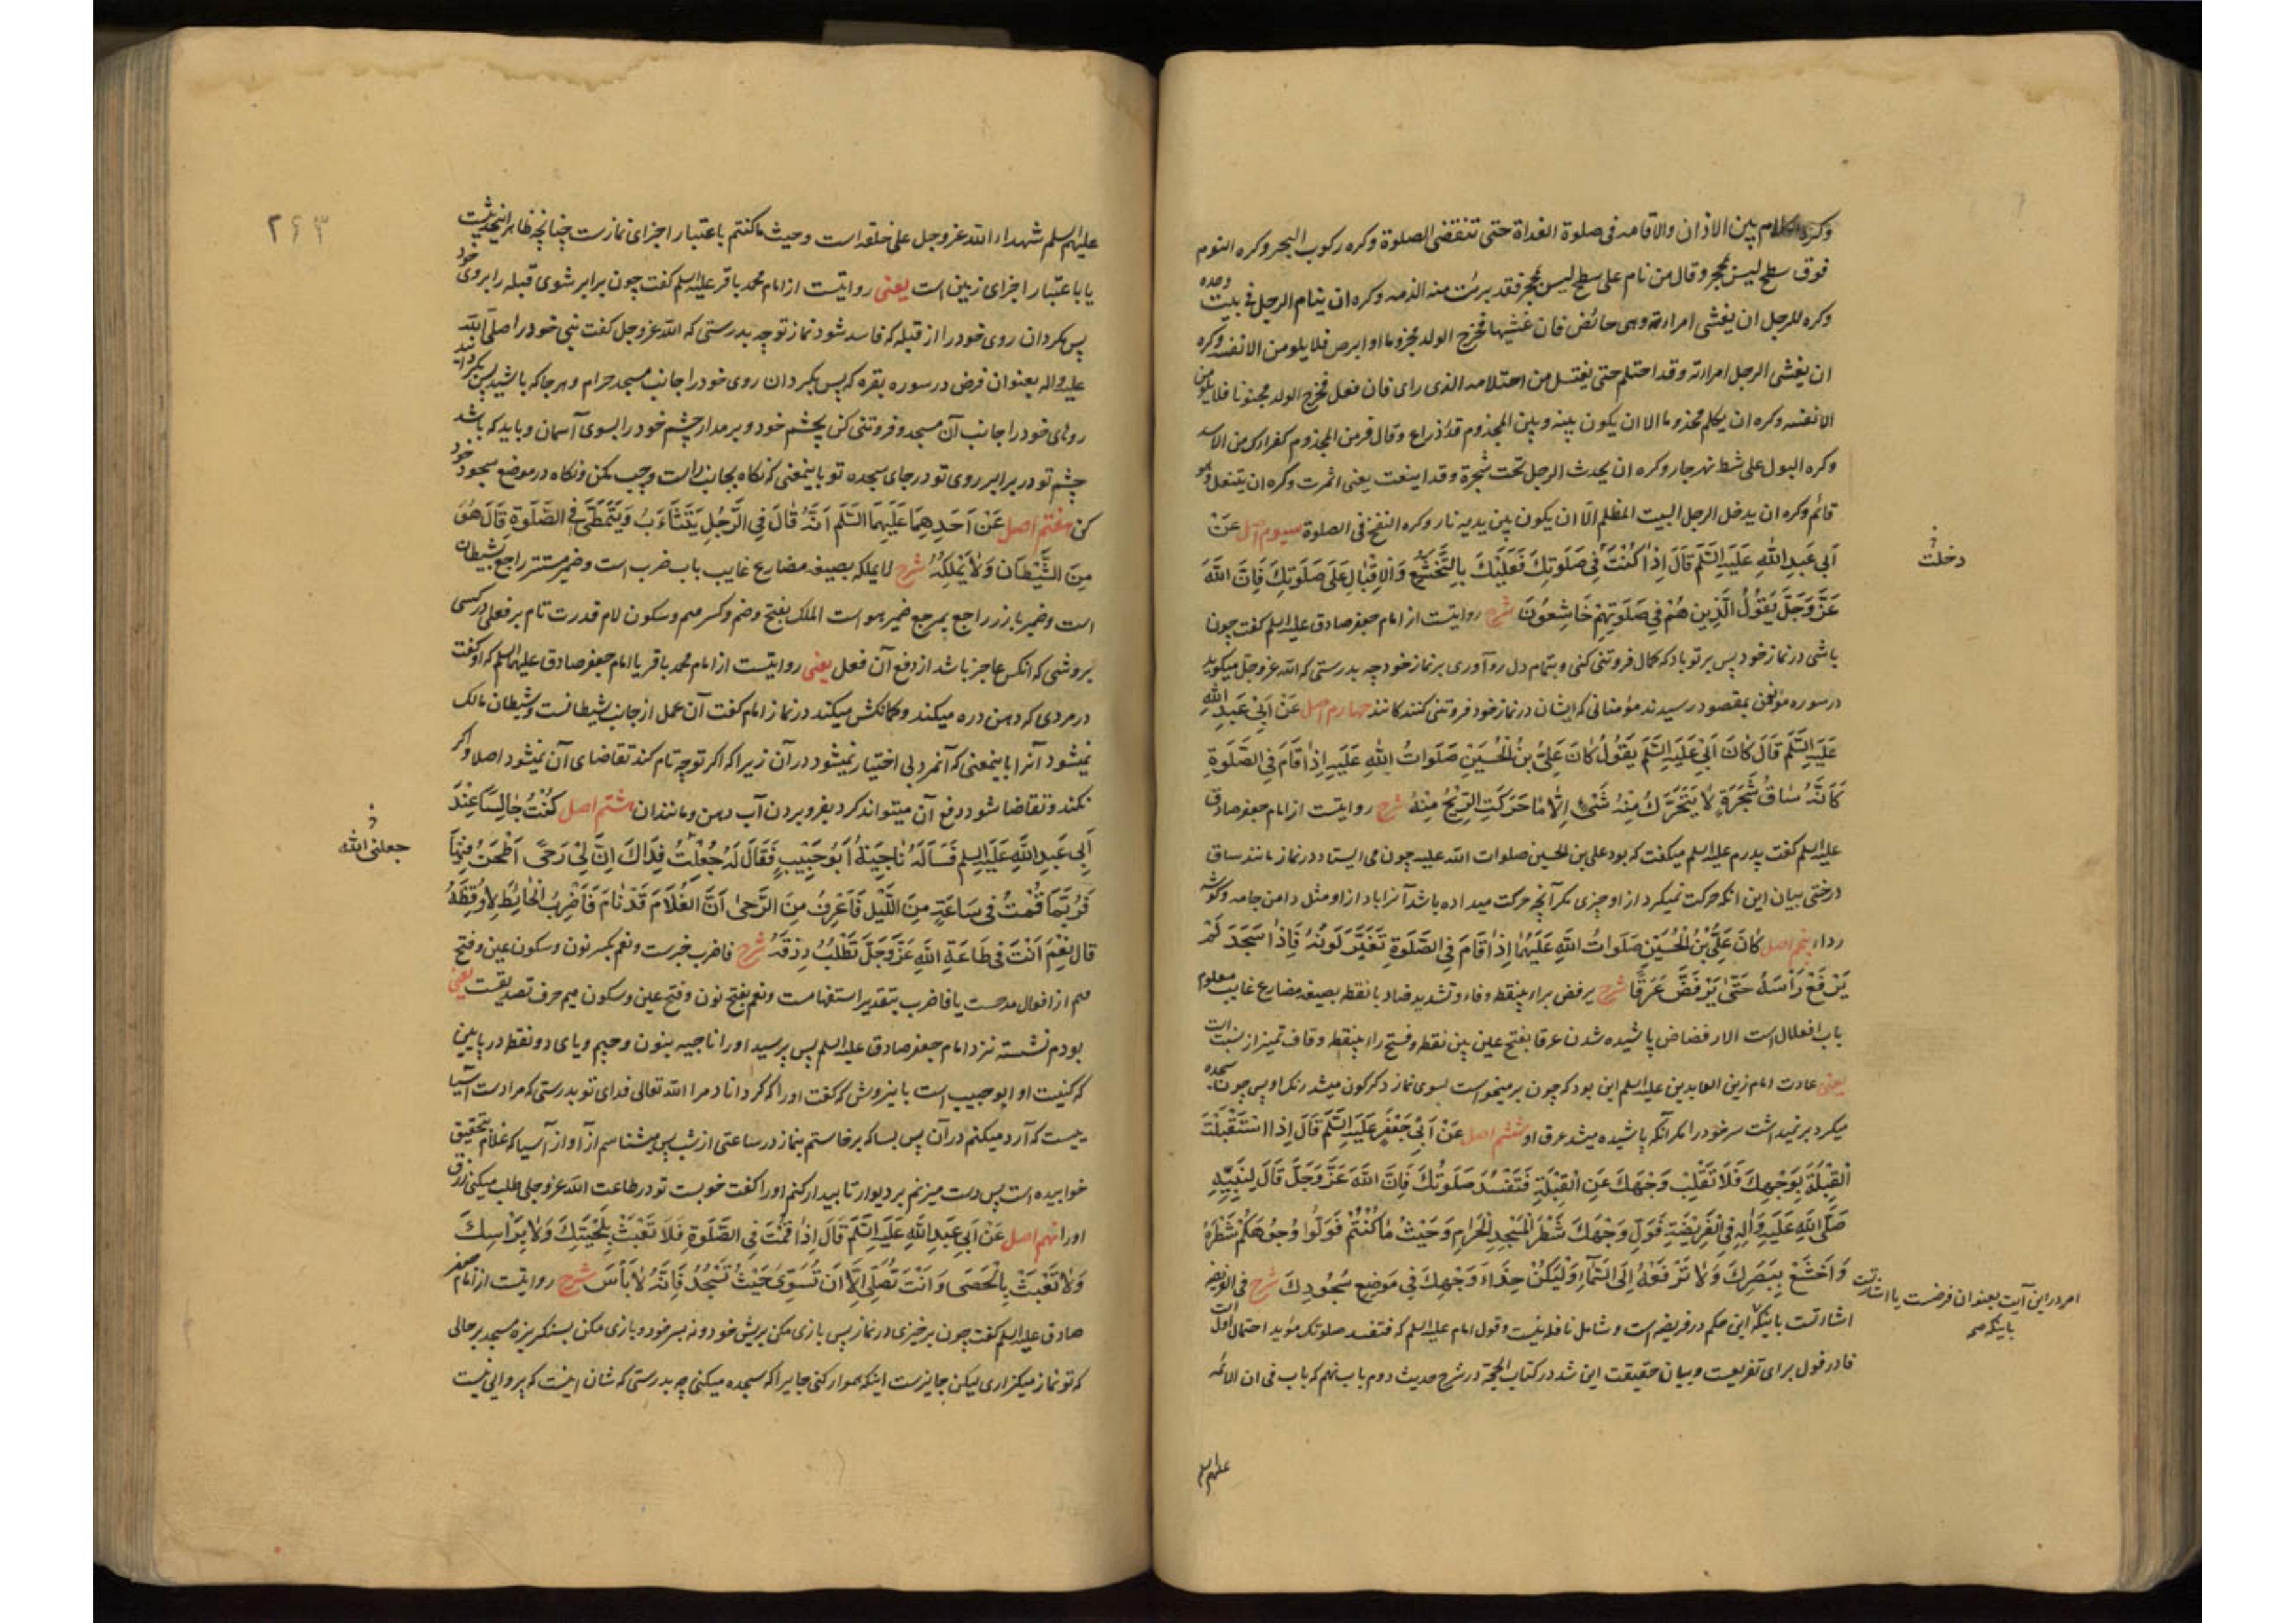 وكره الكلام بين الاذان والاقامه فى صلوة الغداة حتى تنقضى الصلوة وكره ركوب البحر وكره النوم
فوق سطح ليس بمحجر وقال من نام على سطح ليس بمحجر فقد برئت منه الذمه وكره ان ينام الرجل فى بيت وحده
وكره للرجل ان يغشى امراءته وهى حائض فان غشيها فخرج الولد مجزوما او ابرص فلا يلومن الا نفسه وكره
ان يغشى الرجل امراءته وقد احتلم حتى يغتسل من احتلامه الذى راى فان فعل فخرج الولد مجنونا فلا يلومن
الا نفسه وكره ان يكلم مجذوما الا ان يكون بينه وبين المجذوم قدر ذراع وقال فر من المجذوم كفرارك من الاسد
وكره البول على شط نهر جار وكره ان يحدث الرجل تحت شجرة وقد اينعت يعنى اثمرت وكره ان يتنعل وهو
قائم وكره ان يدخل الرجل البيت المظلم الّا ان يكون بين يديه نار وكره النفخ فى الصلوة سيوم اصل عَنْ
اَبى عَبدِ اللهِ عَلَيهِ السَّلَم قَالَ اِذٰا كُنْتَ فِى صَلَوتِكَ فَعَلَيْكَ بِالتَّخَشُّعِ وَالاِقْبٰالِ عَلَى صَلَوتِكَ فَاِنَّ اللهَ
عَزَّ وَجَلَّ يَقُولُ الَّذِينَ هُمْ فِي صَلَوتِهِمْ خَاشِعُونَ شرح روايتست از امام جعفر صادق عليه السلم كفت چون
باشى در نماز خود پس بر تو باد كه كمال فروتنى كنى و بتمام دل رو آورى بر نماز خود چه بدرستى كه الله عز وجل ميكويد
در سوره مؤمنون بمقصود رسيدند مؤمنانى كه ايشان در نماز خود فروتنى كنندكانند چهارم اصل عَنْ اَبِي عَبدِ اللهِ
عَلَيهِ السَّلَم قَالَ كٰانَ اَبِي عَلَيهِ السَّلَم يَقُولُ كٰانَ عَلِيُّ بنُ الْحُسَيْنِ صَلَوَاتُ اللهِ عَلَيهِ اِذٰا قَامَ فِى الصَّلَوةِ
كَاَنَّهُ سٰاقُ شَجَرَةٍ لٰا يَتَحَرَّكُ مِنْهُ شَىْءٌ اِلّٰا مٰا حَرَكَتِ الرِّيْحُ مِنْهُ شرح روايتست از امام جعفر صادق
عليه السلم كفت پدرم عليه السلم ميكفت كه بود على بن الحسين صلوات الله عليه چون مى ايستاد در نماز مانند ساق
درختى بيان اين انكه حركت نميكرد از او چيزى مكر آنچه حركت ميداده باشد آنرا باد از او مثل دامن جامه و كوشه
رداء پنجم اصل كٰانَ عَلِيُّ بْنُ الْحُسَيْنِ صَلَوَاتُ اللهِ عَلَيْهِمٰا اِذٰا قَامَ فِى الصَّلَوةِ تَغَيَّرَ لَوْنُهُ فَاِذٰا سَجَدَ لَمْ
يَرْفَعْ رَأْسَهُ حَتّٰى يَرْفَضَّ عَرَقًا شرح يرفض براء بينقطه وفاء وتشديد ضاد بانقطه بصيغه مضارع غايب معلوم
باب افعلال است الارفضاض پاشيده شدن عرقا بفتح عين بى نقطه وفتح راء بينقطه وقاف تميز از نسبت است
يعنى عادت امام زين العابدين عليه السلم اين بود كه چون برميخواست بسوى نماز دكركون ميشد رنك او پس چون سجده
ميكرد برنميداشت سر خود را مكر آنكه پاشيده ميشد عرق او ششم اصل عَنْ اَبِى جَعْفَرٍ عَلَيهِ السَّلَم قَالَ اِذٰا اسْتَقْبَلْتَ
الْقِبْلَةَ بِوَجْهِكَ فَلَا تَقْلِبْ وَجْهَكَ عَنِ الْقِبْلَةِ فَتَفْسُدَ صَلَوتُكَ فَاِنَّ اللهَ عَزَّ وَجَلَّ قَالَ لِنَبِيِّهِ
صَلَّى اللهُ عَلَيهِ وَاٰلِهِ فِى الْفَرِيْضَةِ فَوَلِّ وَجْهَكَ شَطْرَ الْمَسْجِدِ الْحَرَامِ وَحَيْثُ مٰا كُنْتُمْ فَوَلُّوا وُجُوهَكُمْ شَطْرَهُ
وَاخْشَعْ بِبَصَرِكَ وَلٰا تَرْفَعْهُ اِلَى السَّمٰآءِ وَلْيَكُنْ حِذَاءَ وَجْهِكَ فِى مَوْضِعِ سُجُودِكَ شرح فى الفريضه
اشارتست باينكه اين حكم در فريضه است و شامل نافله نيست وقول امام عليه السلم كه فتفسد صلوتك مؤيد احتمال اول است
فا در فول براى تفريعست و بيان حقيقت اين شد در كتاب الحجة در شرح حديث دوم باب نهم كه باب فى ان الائمه
عليهم السلم
دخلت
امر در اين آيت بعنوان فرضست يا اشارتست
باينكه صح
۲۶۳
عليهم السلم شهداء الله عز وجل على خلقه است و حيث ما كنتم باعتبار اجزاى نماز ست چنانچه ظاهر اينحديثست
يا باعتبار اجزاى زمين است يعنى روايتست از امام محمد باقر عليه السلم كفت چون برابر شوى قبله را بروى خود
پس مكردان روى خود را از قبله كه فاسد شود نماز تو چه بدرستى كه الله عز وجل كفت نبى خود را صلى الله
عليه واله بعنوان فرض در سوره بقره كه پس بكردان روى خود را جانب مسجد حرام و هر جا كه باشيد پس بكردانيد
روهاى خود را جانب آن مسجد و فروتنى كن بچشم خود و برمدار چشم خود را بسوى آسمان و بايد كه باشد
چشم تو در برابر روى تو در جاى سجده تو باينمعنى كه نكاه بجانب راست و چپ مكن و نكاه در موضع سجود خود
كن هفتم اصل عَنْ اَحَدِهِمَا عَلَيهِمَا السَّلَم اَنَّهُ قَالَ فِى الرَّجُلِ يَتَثَاءَبُ وَيَتَمَطّٰى فِى الصَّلَوةِ قَالَ هُوَ
مِنَ الشَّيْطَانِ وَلٰا يَمْلِكُهُ شرح لا يملكه بصيغه مضارع غايب باب ضرب است و ضمير مستتر راجع بشيطان
است و ضمير بارز راجع بمرجع ضمير هو است الملك بفتح وضم وكسر ميم وسكون لام قدرت تام بر فعلى در كسى
بروشى كه انكس عاجز باشد از دفع آن فعل يعنى روايتست از امام محمد باقر يا امام جعفر صادق عليهما السلم كه او كفت
در مردى كه دهن دره ميكند و كمانكش ميكند در نماز امام كفت آن عمل از جانب شيطانست و شيطان مالك
نميشود آنرا باينمعنى كه آنمرد بى اختيار نميشود در آن زيرا كه اكر توجه تام كند تقاضاى آن نميشود اصلا و اكر
نكند و تقاضا شود دفع آن ميتواند كرد بفرو بردن آب دهن و مانند ان هشتم اصل كُنْتُ جٰالِسًا عِنْدَ
اَبِى عَبدِ اللهِ عَلَيهِ السلم فَسَاَلَهُ نٰاجِيَةُ اَبُو حَبِيْبٍ فَقَالَ لَهُ جُعِلْتُ فِدَاكَ اِنَّ لِىْ رَحًى اَطْحَنُ فِيهَا
فَرُبَّمَا قُمْتُ فِى سَاعَةٍ مِنَ اللَّيْلِ فَاَعْرِفُ مِنَ الرَّحٰى اَنَّ الْغُلَامَ قَدْ نَامَ فَاَضْرِبُ الْحَائِطَ لِاُوقِظَهُ
قَالَ نِعْمَ اَنْتَ فِى طَاعَةِ اللهِ عَزَّ وَجَلَّ تَطْلُبُ رِزْقَهُ شرح فاضرب خبرست و نعم بكسر نون وسكون عين وفتح
ميم از افعال مدحست يا فاضرب بتقدير استفهامست و نعم بفتح نون وفتح عين وسكون ميم حرف تصديقست يعنى
بودم نشسته نزد امام جعفر صادق عليه السلم پس پرسيد او را ناجيه بنون و جيم و ياى دو نقطه در پايين
كه كنيت او ابو حبيب است باينروش كه كفت او را كه كرداناد مرا الله تعالى فداى تو بدرستى كه مرا دست آسيا
ييست كه آرد ميكنم در آن پس بسا كه برخاستم بنماز در ساعتى از شب پس ميشناسم از آواز آسيا كه غلام بتحقيق
خوابيده است پس دست ميزنم بر ديوار تا بيدار كنم او را كفت خوبست تو در طاعت الله عز وجلى طلب ميكنى رزق
او را نهم اصل عَنْ اَبِى عَبدِ اللهِ عَلَيهِ السَّلَم قَالَ اِذٰا قُمْتَ فِى الصَّلَوةِ فَلَا تَعْبَثْ بِلِحْيَتِكَ وَلٰا بِرَأْسِكَ
وَلٰا تَعْبَثْ بِالْحَصَى وَاَنْتَ تُصَلِّى اِلّٰا اَنْ تُسَوِّىَ حَيْثُ تَسْجُدُ فَاِنَّهُ لٰا بَأْسَ شرح روايتست از امام جعفر
صادق عليه السلم كفت چون برخيزى در نماز پس بازى مكن بريش خود و نه بسر خود و بازى مكن بسنكريزه مسجد بر حالى
كه تو نماز ميكزارى ليكن جايزست اينكه هموار كنى جاييرا كه سجده ميكنى چه بدرستى كه شان اينست كه پروايى نيست
جعلنى الله